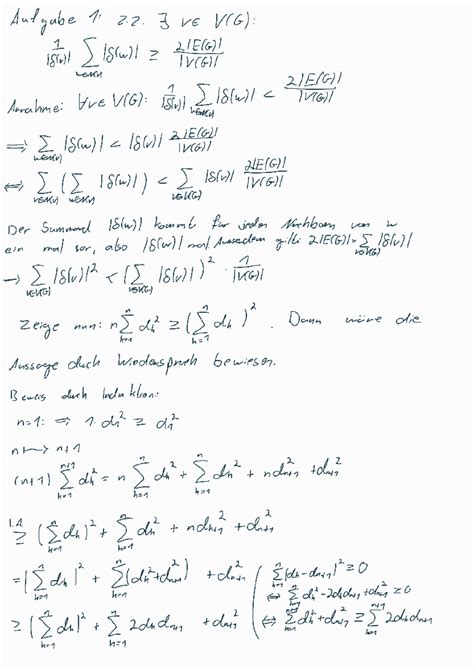 Aufgabe 1: z.z. ∃ v∈ V(G):
1/|δ(v)| ∑_{w∈N(v)} |δ(w)| ≥ 2|E(G)|/|V(G)|
Annahme: ∀v∈ V(G): 1/|δ(v)| ∑_{w∈N(v)} |δ(w)| < 2|E(G)|/|V(G)|
⇒ ∑_{w∈N(v)} |δ(w)| < |δ(v)| 2|E(G)|/|V(G)|
⇔ ∑_{v∈V(G)} ( ∑_{w∈N(v)} |δ(w)| ) < ∑_{v∈V(G)} |δ(v)| 2|E(G)|/|V(G)|
Der Summand |δ(w)| kommt für jeden Nachbarn von w
ein mal vor, also |δ(w)| mal Ausserdem gilt: 2|E(G)|=∑_{v∈V(G)} |δ(v)|
→ ∑_{v∈V(G)} |δ(v)|² < (∑_{v∈V(G)} |δ(v)|)² · 1/|V(G)|
Zeige nun: n∑_{h=1}^{n} d_h² ≥ (∑_{h=1}^{n} d_h)². Dann wäre die
Aussage durch Wiederspruch bewiesen.
Beweis durch Induktion:
n=1: ⇒ 1·d_1² ≥ d_1²
n ↦ n+1
(n+1) ∑_{h=1}^{n+1} d_h² = n ∑_{h=1}^{n} d_h² + ∑_{h=1}^{n} d_h² + n d_{n+1}² + d_{n+1}²
I.A. ≥ (∑_{h=1}^{n} d_h)² + ∑_{h=1}^{n} d_h² + n d_{n+1}² + d_{n+1}²
= (∑_{h=1}^{n} d_h)² + ∑_{h=1}^{n} (d_h² + d_{n+1}²) + d_{n+1}²
≥ (∑_{h=1}^{n} d_h)² + ∑_{h=1}^{n} 2d_h d_{n+1} + d_{n+1}²
∑_{h=1}^{n} (d_h - d_{n+1})² ≥ 0
⇔ ∑_{h=1}^{n} d_h² - 2d_h d_{n+1} + d_{n+1}² ≥ 0
⇔ ∑_{h=1}^{n+1} d_h² + d_{n+1}² ≥ ∑_{h=1}^{n+1} 2d_h d_{n+1}